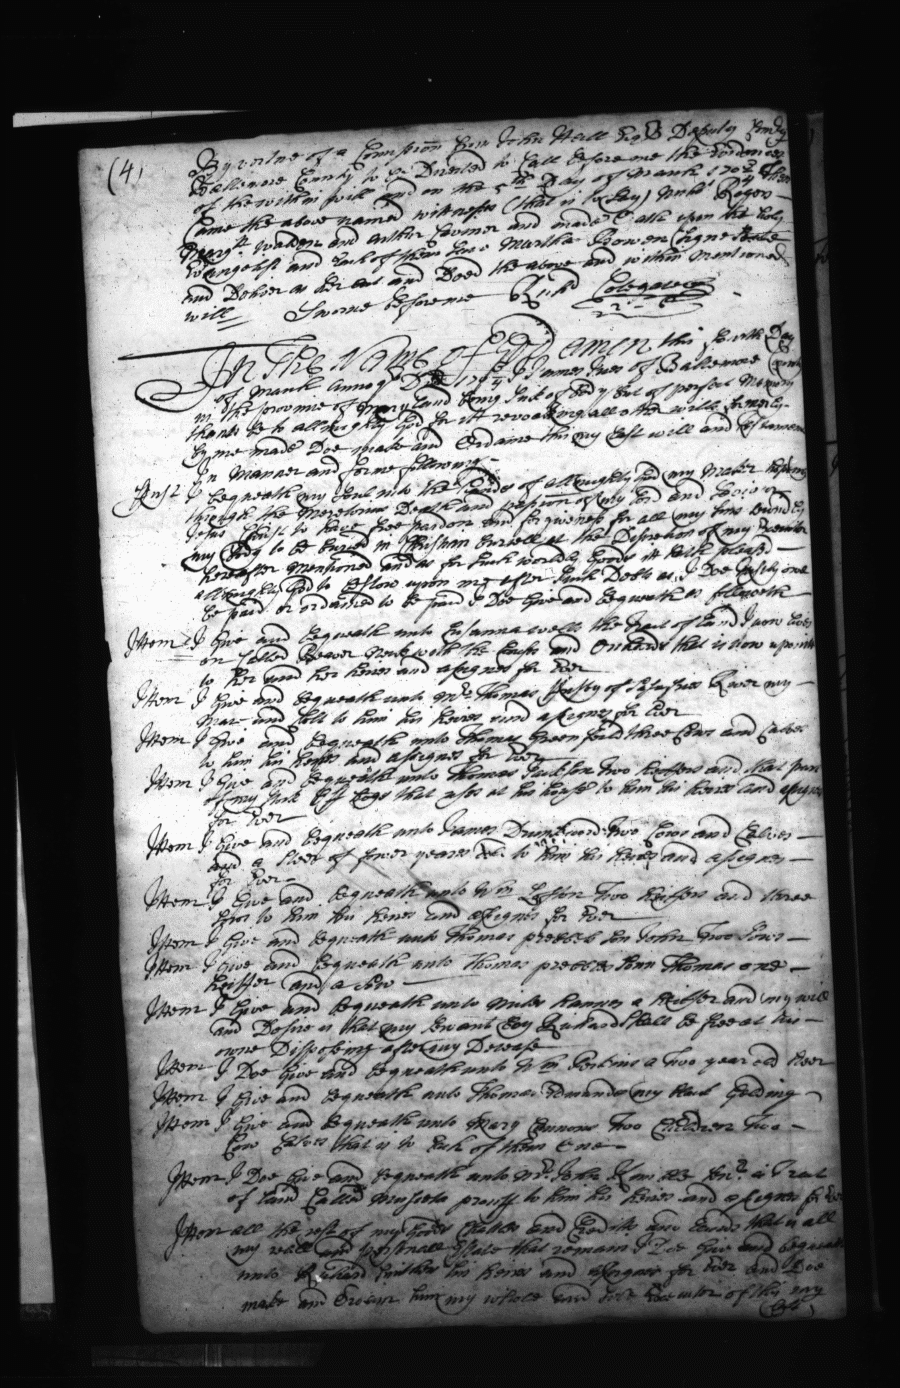 (4)
By vertue of a Comission from John Hall Esqr Deputy
Baltemore County to me Directed to Call before me the Evidences
of the within will and on the 5th Day of March 170¾ then
Came the above named wittnesses (that is to Say) Roger
Margt and Arthur and made Oath upon the holy
Evangelist and Each of them have Martha Bowen Signe Seale
and Deliver as her act and Deed the above and within mentioned
will Sworne before me Richd Colegate
In THE NAME of God Amen this fourth Day
of March Annoq Do 1704 I James Ives of Baltemore County
in the Province of Maryland being Sick of Body but of perfect Memory
thanks be to allmighty God for itt revoaking all other wills formerly
by me made Doe make and Ordaine this my last will and testament
In Manner and forme following
First I bequeath my Soul into the hands of allmighty God my Maker hopeing
through the Meretorious Death and passion of my Lord and Savior
Jesus Christ to have free pardon and forgiveness for all my Sins and
my Body to be buried in Christian Buriall at the Discretion of my Executor
hereafter Mentioned and as for Such worldly Goods itt hath pleased
allmighty God to bestow upon me after Such Debts as I Doe Justly owe
be paid or ordained to be paid I Doe Give and bequeath as followeth
Ittem I Give and bequeath unto Susanna wells the tract of Land I now live
on Called Beaver Neck with the and Orchards that is now upon itt
to her and her heires and assignes for Ever
Ittem I Give and bequeath unto Mr Thomas of Sasafras River my
Mare and Colt to him his heires and assignes for Ever
Ittem I Give and bequeath unto Thomas Greenfield three Cows and Calves
to him his heires and assignes for Ever
Ittem I Give and bequeath unto Thomas Jackson two heifers and that part
of my Stock of Hogs that uses at his house to him his heires and assignes
for Ever
Ittem I Give and bequeath unto James two Cows and Calves
and a Steer of fower years old to him his heires and assignes
for Ever
Ittem I Give and bequeath unto Wm Two heifers and three
to him his heires and assignes for Ever
Ittem I Give and bequeath unto Thomas prebbls Son John Two Sows
Ittem I Give and bequeath unto Thomas prebbles Son Thomas one
heiffer and a Sow
Ittem I Give and bequeath unto Miles Hannis a heifer and my will
and Desire is that my Servant boy Richard Shall be free at his
owne Disposeing after my Decease
Ittem I Doe Give and bequeath unto Wm Perkins a Two year old Steer
Ittem I Give and bequeath unto Thomas Edmunds my black Gelding
Ittem I Give and bequeath unto Mary Cannons Two Children Two
Cow Calves that is to Each of them One
Ittem I Doe Give and bequeath unto Mr John Senr a Tract
of Land Called Musketa proofe to him his heires and assignes for Ever
Ittem all the rest of my Goods Chattles and Credits and Lands that is all
my reall and personall Estate that remain I Doe Give and bequeath
unto Richard his heires and assignes for Ever and Doe
make and Ordain him my whole and Sole Executor of this my
Last